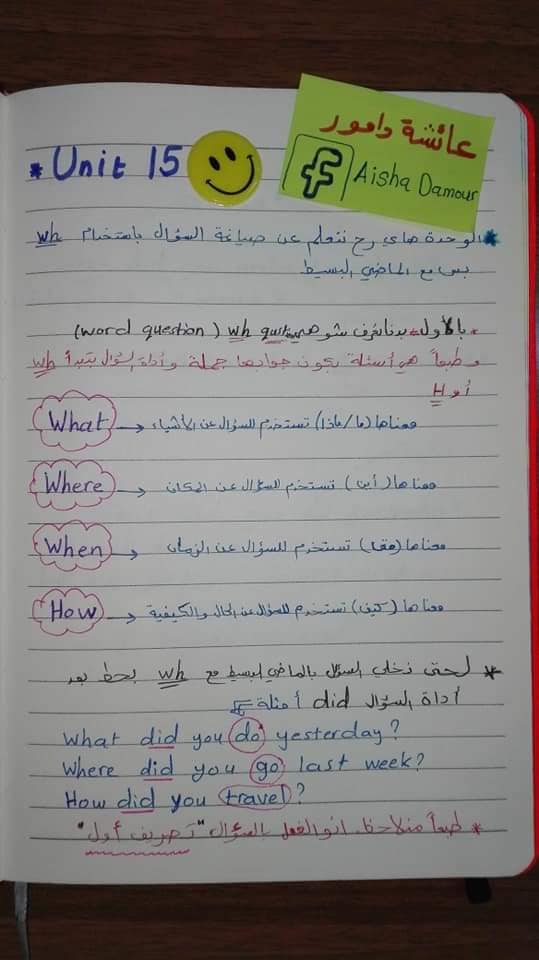 عائشة دامور
f Aisha Damour
* Unit 15
* الوحدة هاي رح نتعلم عن صياغة السؤال باستخدام wh
بس مع الماضي البسيط
* بالأول بدنا نعرف شو هي wh question (word question)
وطبعاً هي أسئلة بكون جوابها جملة وأداة السؤال بتبدأ wh
أو H
What → معناها (ما/ماذا) تستخدم للسؤال عن الأشياء
Where → معناها (أين) تستخدم للسؤال عن المكان
When → معناها (متى) تستخدم للسؤال عن الزمان
How → معناها (كيف) تستخدم للسؤال عن الحال والكيفية
* لحتى نخلي السؤال بالماضي البسيط مع wh بحط بعد
أداة السؤال did أمثلة
What did you do yesterday?
Where did you go last week?
How did you travel?
* طبعاً منلاحظ انو الفعل بالسؤال "تصريف أول"